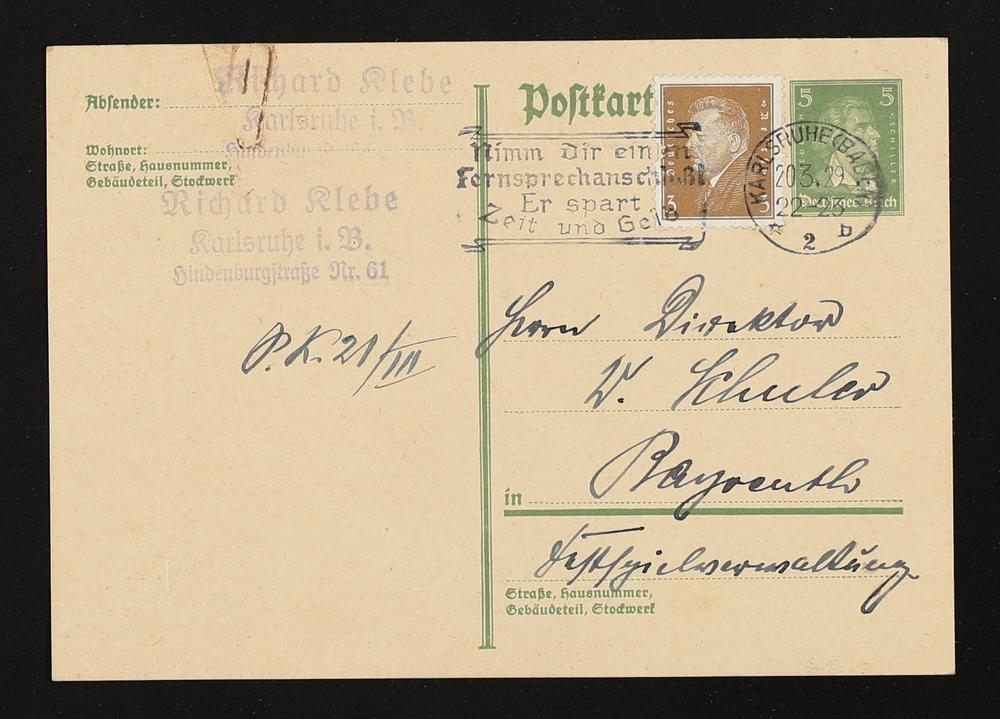 Richard Klebe
Absender:
Karlsruhe i. B.
Wohnort:
Straße, Hausnummer,
Gebäudeteil, Stockwerk
Richard Klebe
Karlsruhe i. B.
Hindenburgstraße Nr. 61
P.K. 21/III
Postkart
Nimm dir einen
Fernsprechanschluß!
Er spart
Zeit und Geld
3 3
5 5
Deutsches Reich
KARLSRUHE (BADEN)
20.3.29
22-23
2 b
Herrn Direktor
W. Schuler
in Bayreuth
Festspielverwaltung
Straße, Hausnummer,
Gebäudeteil, Stockwerk